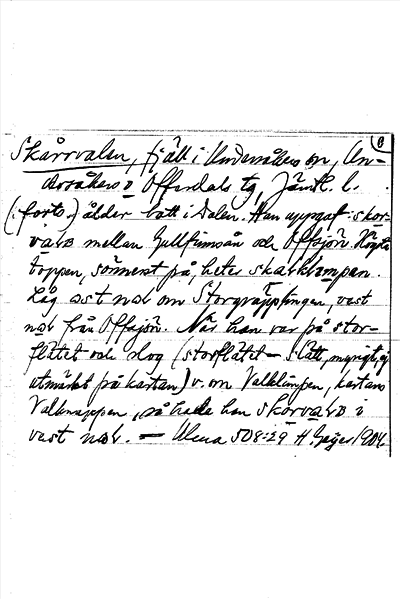 6
Skårrvalen, fjäll i Undersåkers sn, Un-
dersåkers o Offerdals tg, Jämtl. l.
(:forts.) ålder bott i dalen. Han uppgaf skor-
valo mellan Gullfimsån och Offsjön. Högsta
toppen, sörmerst på, heter skalklimpen.
Låg ost nol om Storgräpplingen, vast
nol från Offsjön. När han var på stor-
flätet och slog (storflätet – Slått, myrigt, ej
utmärkt på kartan) v. om Valklimpen, kartans
Valknappen, så hade han skorvalo i
vast nol. — Ulma 508:29 H. Geijer 1904.